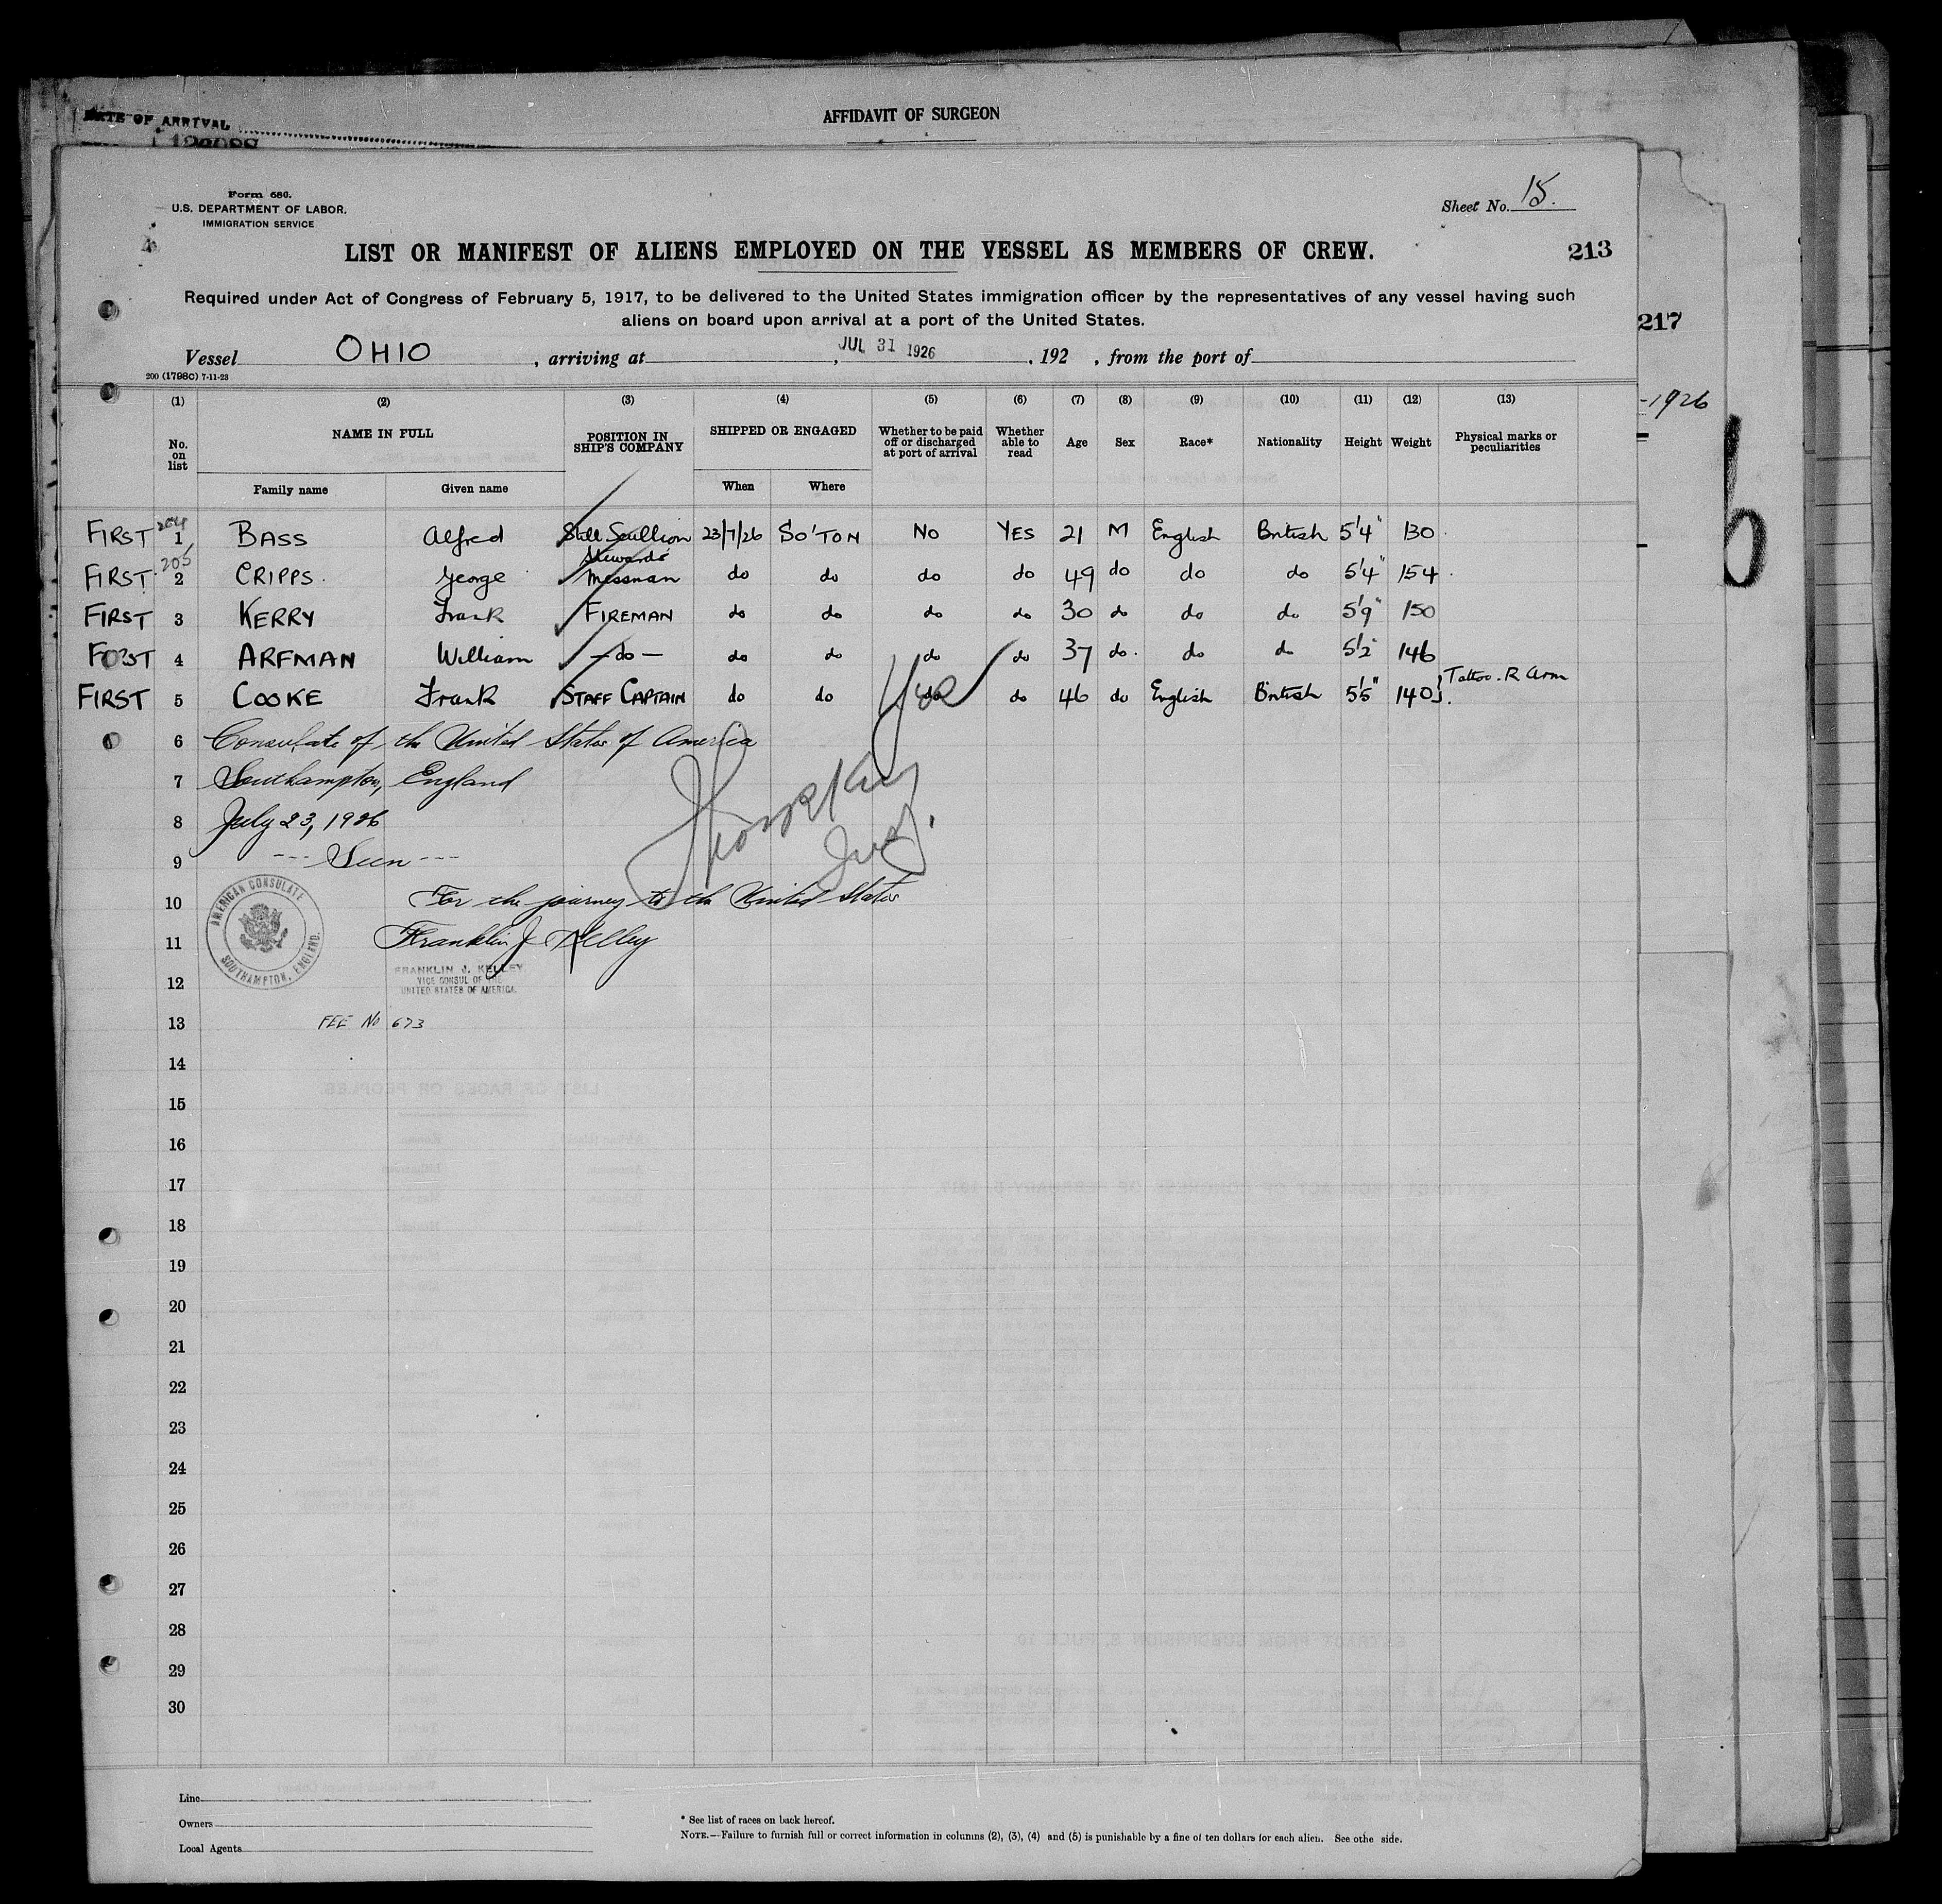 AFFIDAVIT OF SURGEON
DATE OF ARRIVAL
Form 680.
U.S. DEPARTMENT OF LABOR.
IMMIGRATION SERVICE
Sheet No. 15.
LIST OR MANIFEST OF ALIENS EMPLOYED ON THE VESSEL AS MEMBERS OF CREW.
213
Required under Act of Congress of February 5, 1917, to be delivered to the United States immigration officer by the representatives of any vessel having such
aliens on board upon arrival at a port of the United States.
217
Vessel OHIO, arriving at , JUL 31 1926, 192 , from the port of
200 (1798C) 7-11-23
-1926
(1) (2) (3) (4) (5) (6) (7) (8) (9) (10) (11) (12) (13)
No. on list NAME IN FULL POSITION IN SHIP'S COMPANY SHIPPED OR ENGAGED Whether to be paid off or discharged at port of arrival Whether able to read Age Sex Race* Nationality Height Weight Physical marks or peculiarities
Family name Given name When Where
FIRST 204 1 BASS Alfred Still Scullion 23/7/26 So'TON No YES 21 M English British 5'4" 130
FIRST 205 2 CRIPPS. George Stewards' Messman do do do do 49 do do do 5'4" 154
FIRST 3 KERRY Frank FIREMAN do do do do 30 do do do 5'9" 150
FIRST 4 ARFMAN William -do- do do do do 37 do. do do 5'2" 146
FIRST 5 COOKE Frank STAFF CAPTAIN do do do do 46 do English British 5'5" 140 Tattoo. R Arm
6 Consulate of the United States of America
7 Southampton, England
8 July 23, 1926
9 --- Seen ---
10 For the journey to the United States
11 Franklin J Kelley
AMERICAN CONSULATE
SOUTHAMPTON, ENGLAND.
FRANKLIN J. KELLEY
VICE CONSUL OF THE
UNITED STATES OF AMERICA.
12
13 FEE No 673
14
15
16
17
18
19
20
21
22
23
24
25
26
27
28
29
30
Line
Owners
Local Agents
* See list of races on back hereof.
NOTE.—Failure to furnish full or correct information in columns (2), (3), (4) and (5) is punishable by a fine of ten dollars for each alien. See othe side.